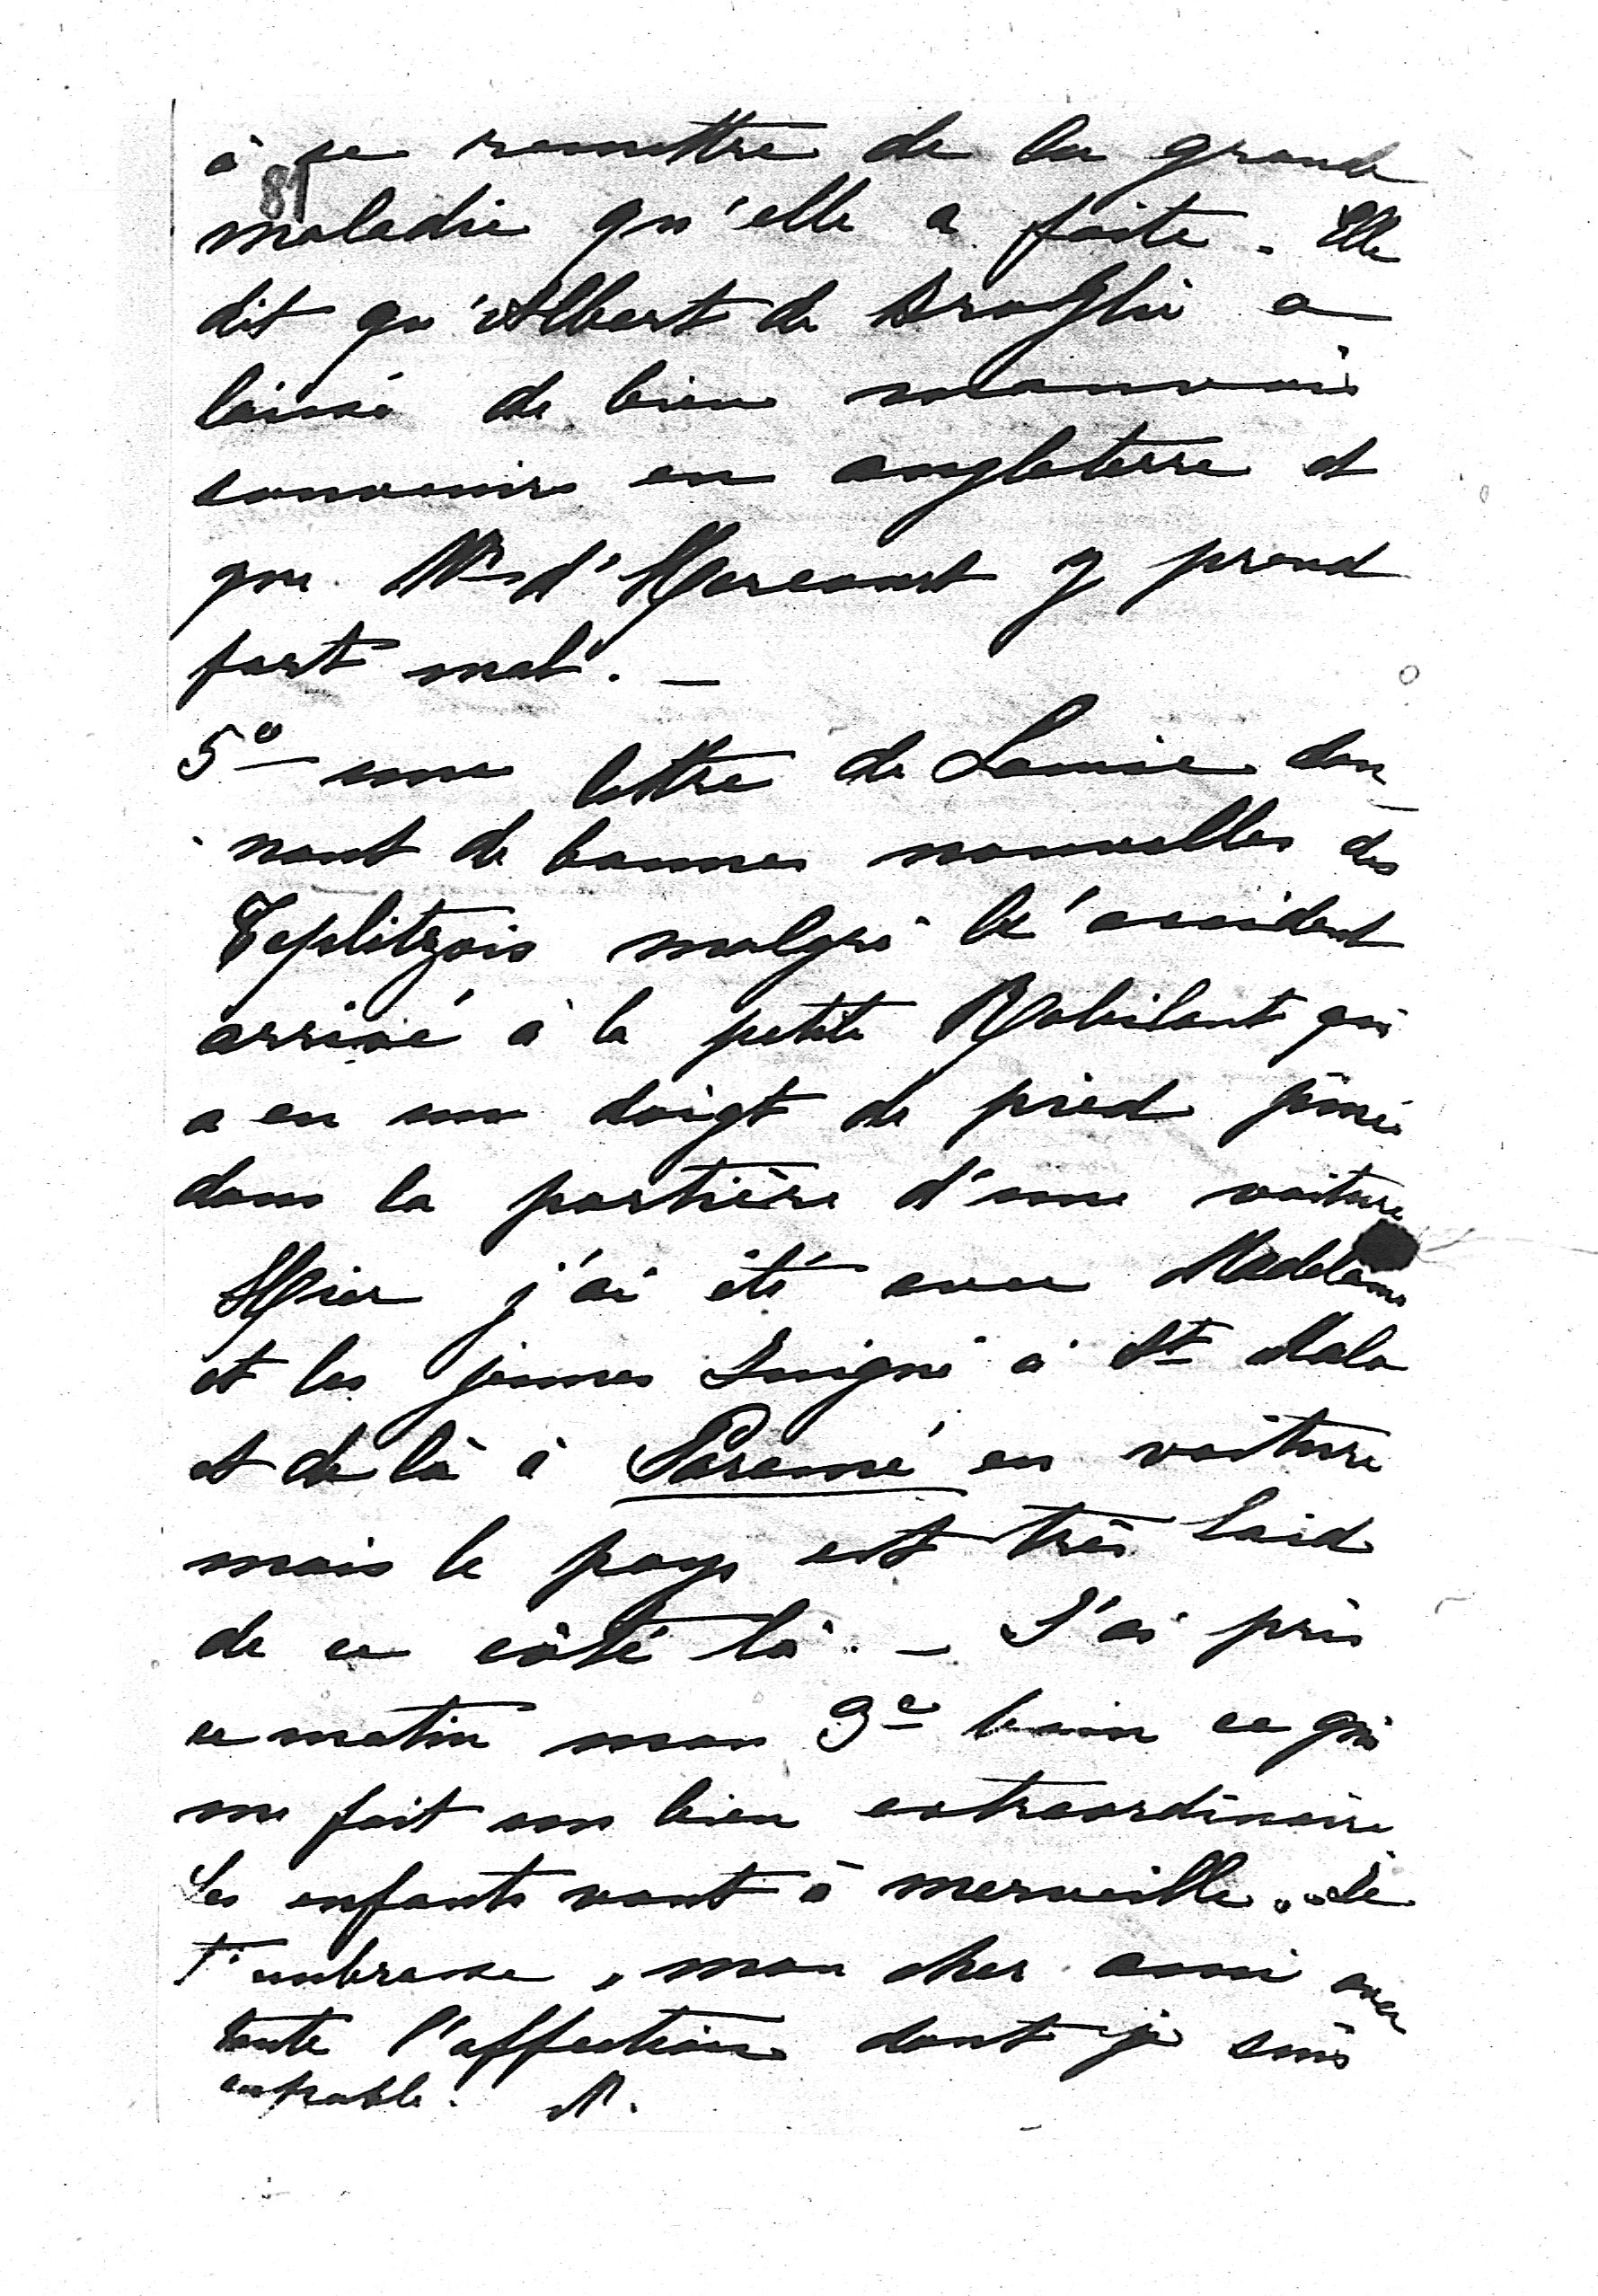 à se remettre de la grande
81
maladie qu'elle a faite. Elle
dit qu'Albert de Broglie a
laissé de bien mauvais
souvenirs en angleterre et
que Mr d'Harcourt y prend
fort mal. _
5º une lettre de Louise don_
nant de bonnes nouvelles des
Teplitzois malgré l'accident
arrivé à la petite Robilant qui
a eu un doigt de pied
dans la portière d'une voiture
Hier j'ai été avec Madeleine
et les jeunes Luigné à St Malo
et de là à Paramé en voiture
mais le pays est très laid
de ce côté là. _ J'ai pris
ce matin mon 3e bain ce qui
me fait un bien extraordinaire
Les enfants vont à merveille. Je
t'embrasse, mon cher ami avec
toute l'affection dont je suis
capable. M.